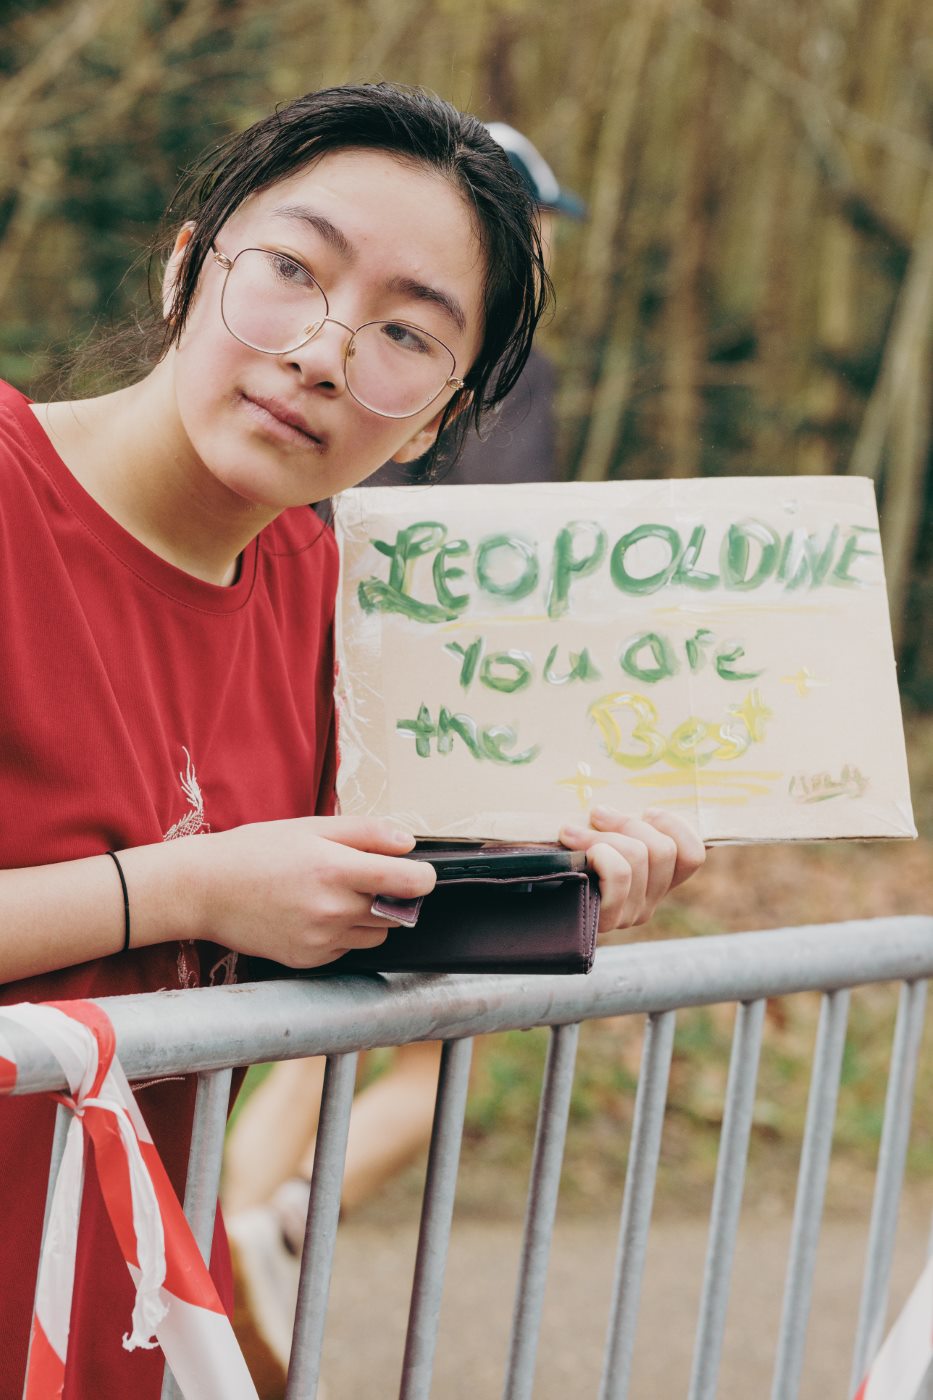 LEOPOLDINE
You are
the Best